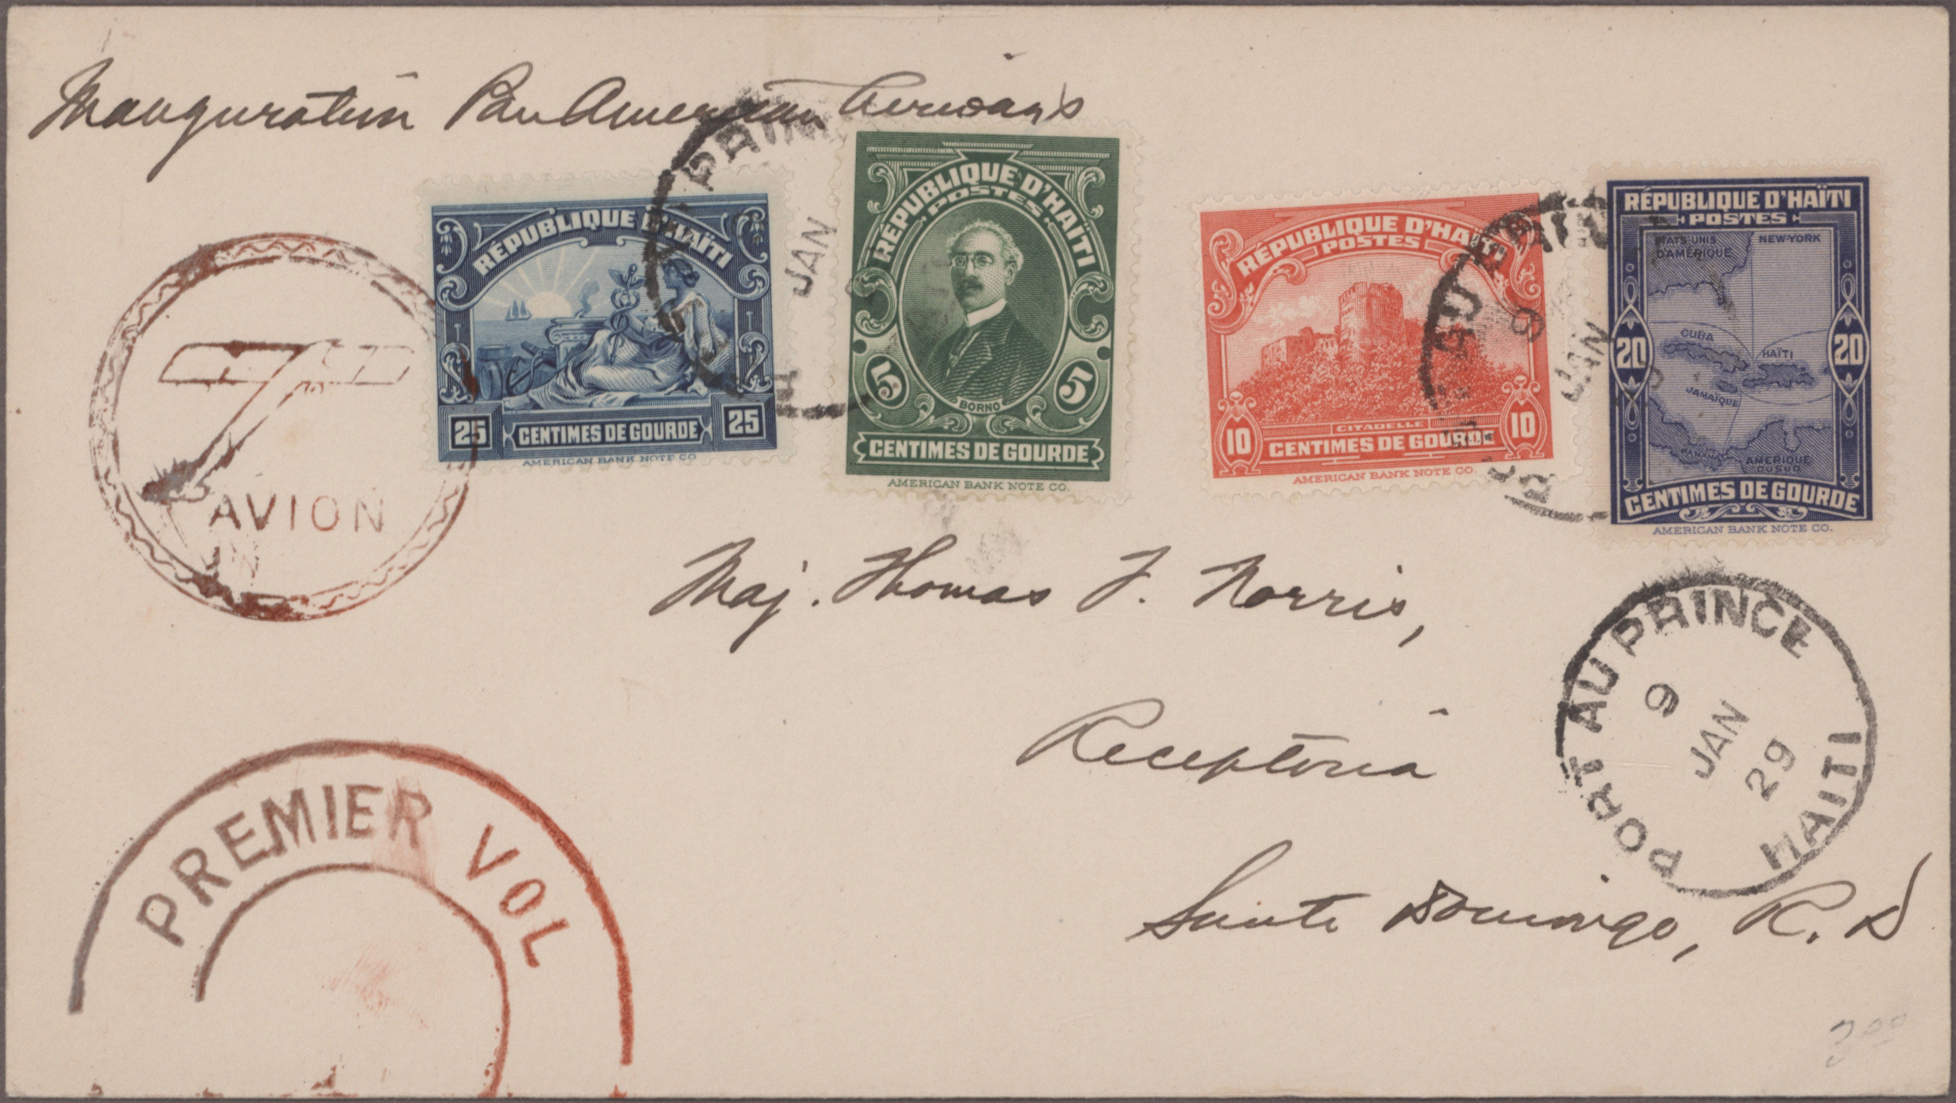 Inauguration Pan American Airways
RÉPUBLIQUE D'HAÏTI
25 CENTIMES DE GOURDE 25
AMERICAN BANK NOTE CO
PRINCE
JAN
RÉPUBLIQUE D'HAÏTI
POSTES
BORNO
5 5
CENTIMES DE GOURDE
AMERICAN BANK NOTE CO.
RÉPUBLIQUE D'HAÏTI
POSTES
CITADELLE
10 CENTIMES DE GOURDE 10
AMERICAN BANK NOTE CO.
AU PRINCE
9
JAN
RÉPUBLIQUE D'HAÏTI
POSTES
ETATS-UNIS D'AMÉRIQUE
NEW-YORK
CUBA
HAÏTI
20 20
JAMAÏQUE
PANAMA
AMÉRIQUE DU SUD
CENTIMES DE GOURDE
AMERICAN BANK NOTE CO.
AVION
Maj. Thomas F. Norris,
Receptoria
Santo Domingo, R. D
PORT AU PRINCE
9
JAN
29
HAITI
PREMIER VOL